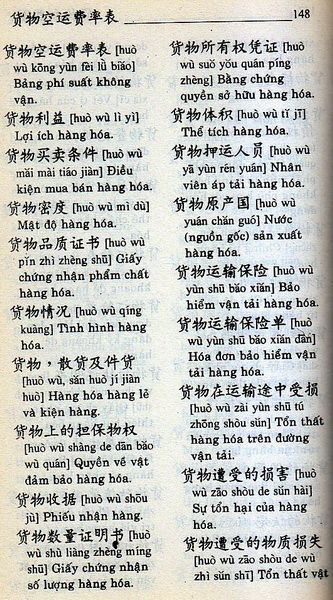 货物空运费率表 148
货物空运费率表 [huò
wù kōng yùn fèi lǜ biǎo]
Bảng phí suất không
vận.
货物利益 [huò wù lì yì]
Lợi ích hàng hóa.
货物买卖条件 [huò wù
mǎi mài tiáo jiàn] Điều
kiện mua bán hàng hóa.
货物密度 [huò wù mì dù]
Mật độ hàng hóa.
货物品质证书 [huò wù
pǐn zhì zhèng shū] Giấy
chứng nhận phẩm chất
hàng hóa.
货物情况 [huò wù qíng
kuàng] Tình hình hàng
hóa.
货物，散货及件货
[huò wù, sǎn huò jí jiàn
huò] Hàng hóa hàng lẻ
và kiện hàng.
货物上的担保物权
[huò wù shàng de dān bǎo
wù quán] Quyền về vật
đảm bảo hàng hóa.
货物收据 [huò wù shōu
jù] Phiếu nhận hàng.
货物数量证明书 [huò
wù shù liàng zhèng míng
shū] Giấy chứng nhận
số lượng hàng hóa.
货物所有权凭证 [huò
wù suǒ yǒu quán píng
zhèng] Bằng chứng
quyền sở hữu hàng hóa.
货物体积 [huò wù tǐ jī]
Thể tích hàng hóa.
货物押运人员 [huò wù
yā yùn rén yuán] Nhân
viên áp tải hàng hóa.
货物原产国 [huò wù
yuán chǎn guó] Nước
(nguồn gốc) sản xuất
hàng hóa.
货物运输保险 [huò wù
yùn shū bǎo xiǎn] Bảo
hiểm vận tải hàng hóa.
货物运输保险单 [huò
wù yùn shū bǎo xiǎn dān]
Hóa đơn bảo hiểm vận
tải hàng hóa.
货物在运输途中受损
[huò wù zài yùn shū tú
zhōng shòu sǔn] Tổn thất
hàng hóa trên đường
vận tải.
货物遭受的损害 [huò
wù zāo shòu de sǔn hài]
Sự tổn hại của hàng
hóa.
货物遭受的物质损失
[huò wù zāo shòu de wù
zhì sǔn shī] Tổn thất vật